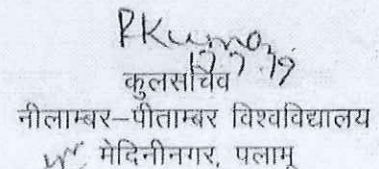 PKumar
17.7.19
कुलसचिव
नीलाम्बर–पीताम्बर विश्वविद्यालय
मेदिनीनगर, पलामू